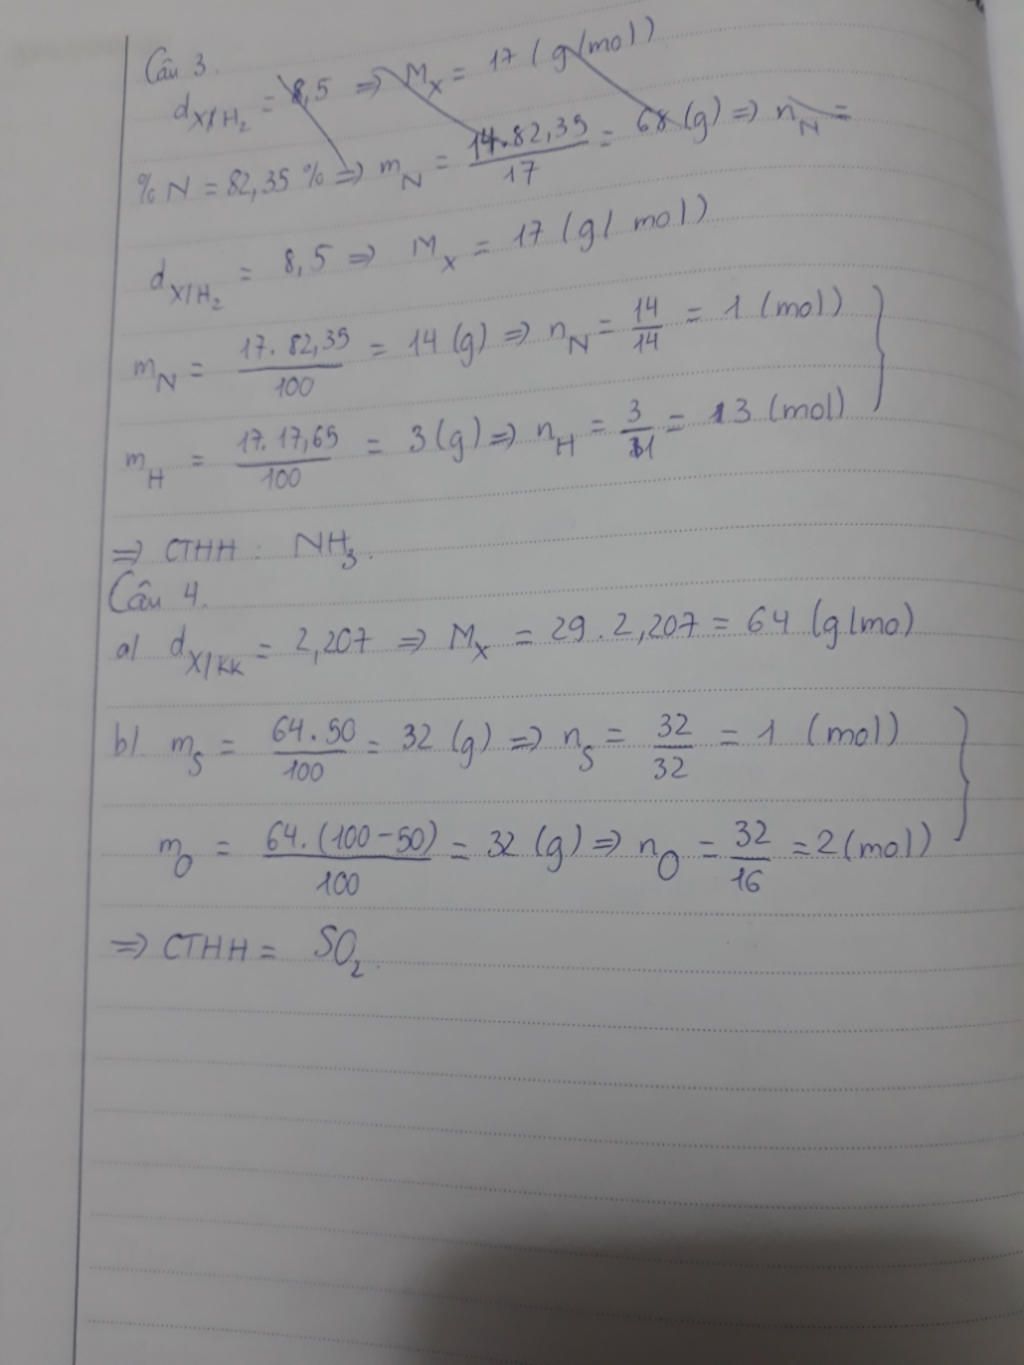 Câu 3.
d X/H₂ = 8,5 ⇒ M_X = 17 (g/mol)
% N = 82,35 % ⇒ m_N = 14.82,35/17 = 68 (g) ⇒ n_N =
d X/H₂ = 8,5 ⇒ M_X = 17 (g/mol)
m_N = 17.82,35/100 = 14 (g) ⇒ n_N = 14/14 = 1 (mol)
m_H = 17.17,65/100 = 3 (g) ⇒ n_H = 3/1 = 3 (mol)
⇒ CTHH : NH₃.
Câu 4.
a) d X/KK = 2,207 ⇒ M_X = 29.2,207 = 64 (g/mo)
b) m_S = 64.50/100 = 32 (g) ⇒ n_S = 32/32 = 1 (mol)
m_O = 64.(100-50)/100 = 32 (g) ⇒ n_O = 32/16 = 2 (mol)
⇒ CTHH = SO₂.